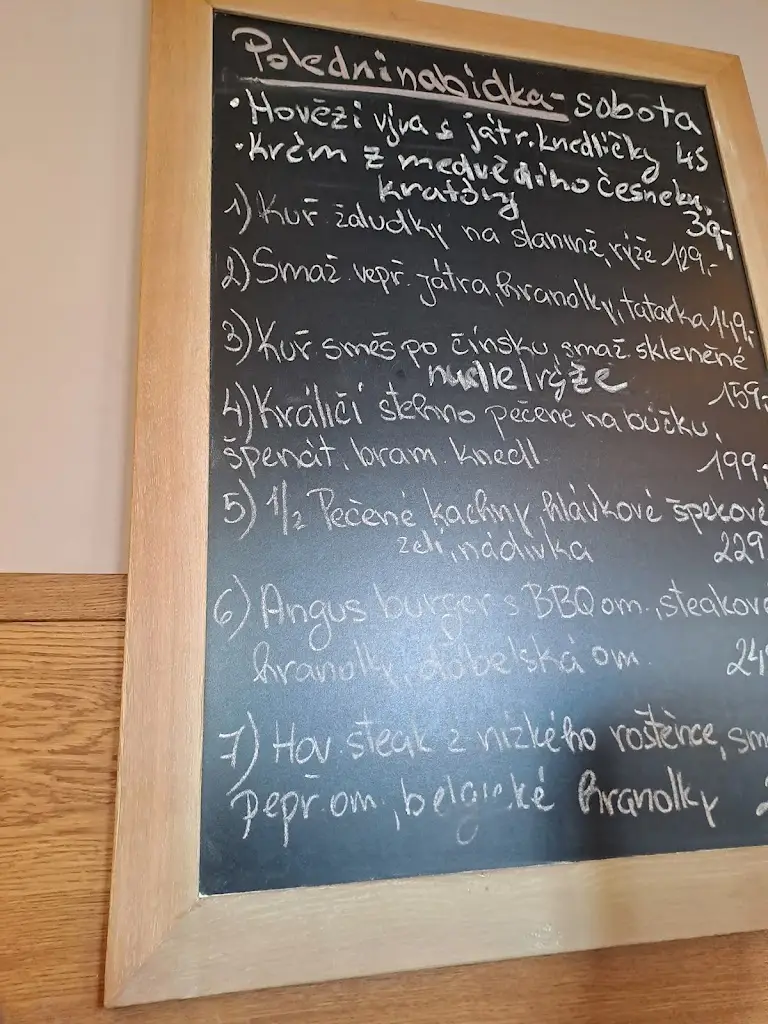 Polední nabídka - sobota
• Hovězí výva s játr. knedlíčky 45
• Krém z medvědího česneku,
krutóny 39,-
1) Kuř žaludky na slanině, rýže 129,-
2) Smaž. vepř. játra, hranolky, tatarka 149,-
3) Kuř směs po čínsku, smaž. skleněné
nudle/rýže 159,-
4) Králičí stehno pečené na bůčku,
špenát, bram. knedl 199,-
5) 1/2 Pečené kachny, hlávkové špekové
zelí, nádivka 229
6) Angus burger s BBQ om., steakové
hranolky, ďábelská om. 24
7) Hov. steak z nízkého roštěnce, sm
pepř. om, belgické hranolky 2